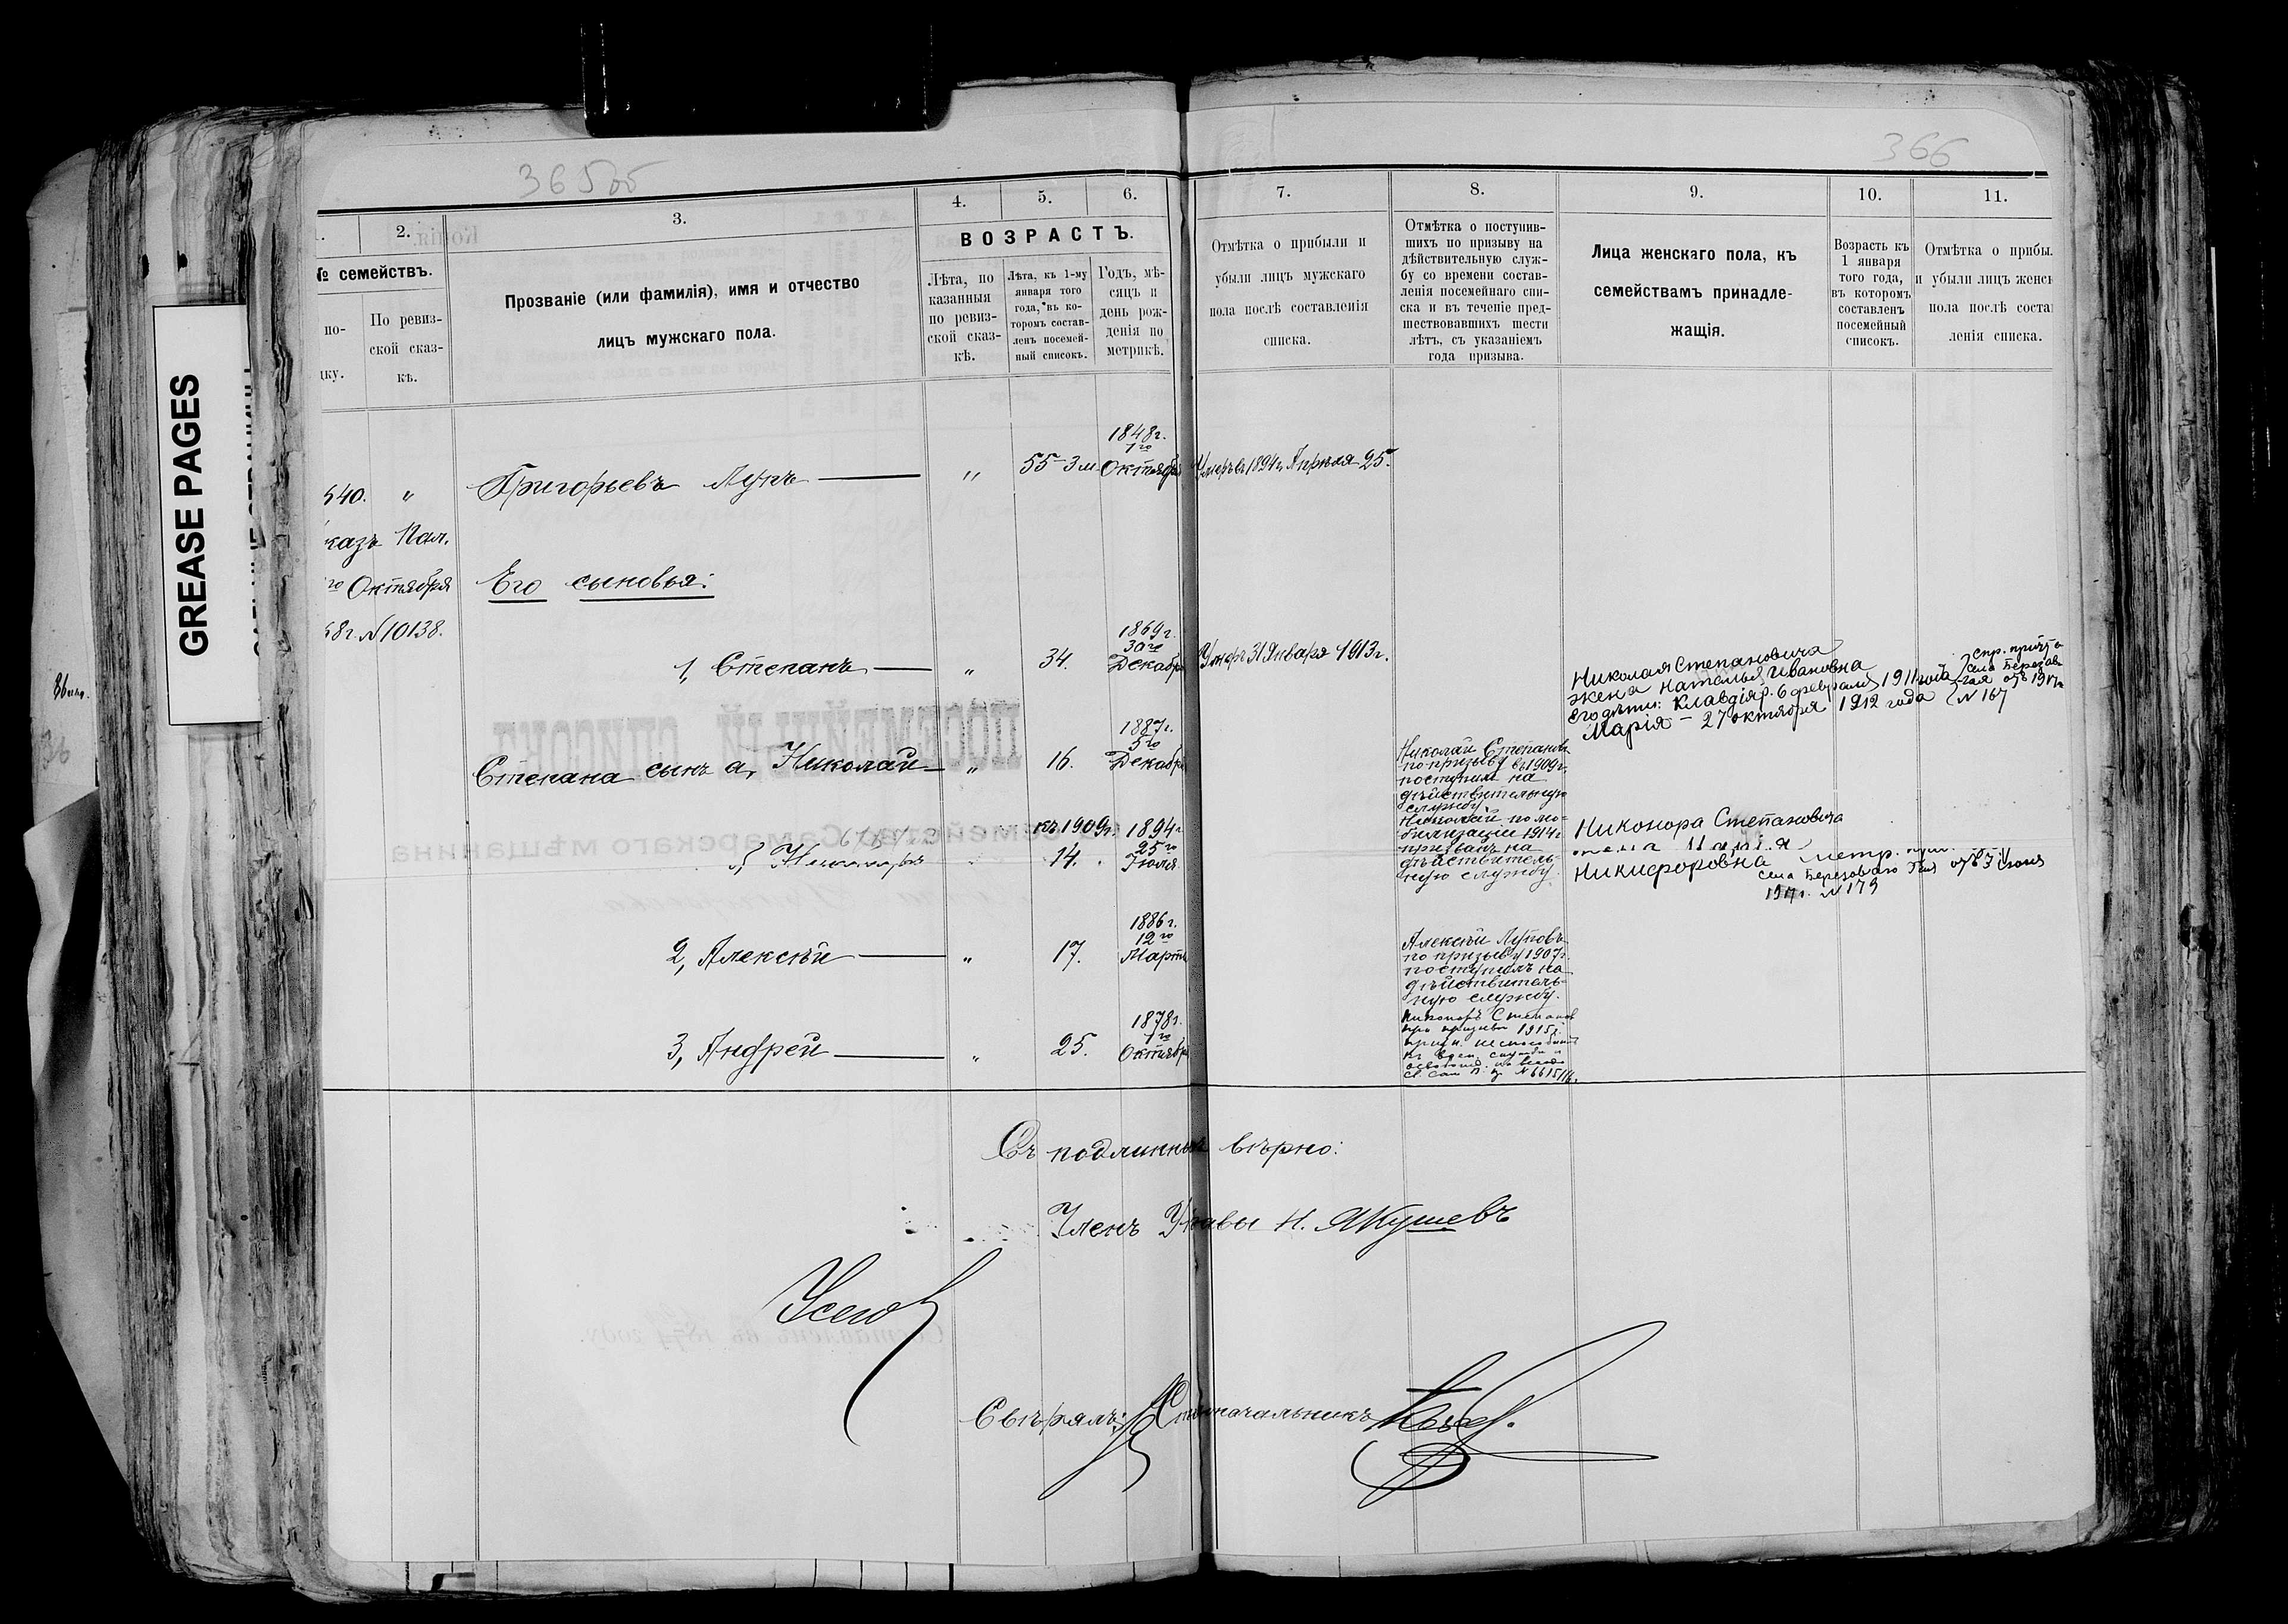 365 об
366
1. 2. 3. 4. 5. 6. 7. 8. 9. 10. 11.
№ семействъ.
по-
дку.
По ревиз-
ской сказ-
кѣ.
Прозваніе (или фамилія), имя и отчество
лицъ мужскаго пола.
ВОЗРАСТЪ.
Лѣта, по
казанныя
по ревиз-
ской сказ-
кѣ.
Лѣта, къ 1-му
января того
года, въ ко-
торомъ состав-
ленъ посемей-
ный списокъ.
Годъ, мѣ-
сяцъ и
день рож-
денія по
метрикѣ.
Отмѣтка о прибыли и
убыли лицъ мужскаго
пола послѣ составленія
списка.
Отмѣтка о поступив-
шихъ по призыву на
дѣйствительную служ-
бу со времени состав-
ленія посемейнаго спи-
ска и въ теченіе пред-
шествовавшихъ шести
лѣтъ, съ указаніемъ
года призыва.
Лица женскаго пола, къ
семействамъ принадле-
жащія.
Возрастъ къ
1 января
того года,
въ которомъ
составленъ
посемейный
списокъ.
Отмѣтка о прибы.
и убыли лицъ женск
пола послѣ соста
ленія списка.
540. "
казъ Пал.
го Октября
68г. №10138.
Григорьевъ Лупъ — " 55-3м 1848г. 1го Октября Умеръ 1894г. Апрѣля 25.
Его сыновья:
1, Степанъ — " 34. 1869г. 30го Декабря Умеръ 31 Января 1913г.
Николая Степановича
жена Наталья Ивановна
его дѣти: Клавдія р. 6 февраля 1911 года
Марія — 27 октября 1912 года
спр. причта
села Березов
отъ 1917г.
№ 167
Степана сынъ а, Николай — " 16. 1887г. 5го Декабря
Николай Степановъ
по призыву въ 1909г.
поступилъ на
дѣйствительную
службу.
Николай по мо-
билизаціи 1914г.
призванъ на
дѣйствитель-
ную службу.
б, Никаноръ къ 1909г. 14. 1894г. 25го Іюля
Никонора Степановича
Никифоровна метр.
села Березоваго
№ 179
2, Алексѣй — " 17. 1886г. 12го Марта
Алексѣй Луповъ
по призыву 1907г.
поступилъ на
дѣйствитель-
ную службу.
3, Андрей — " 25. 1878г. 1го Октября
Никаноръ Степановъ
при призывѣ 1915г.
№ 6615/16.
Съ подлиннымъ вѣрно:
Членъ Управы Н. Якушевъ
Свѣрялъ: Столоначальникъ
GREASE PAGES
ПОСЕМЕЙНЫЙ СПИСОКЪ
семейства Самарскаго мѣщанина